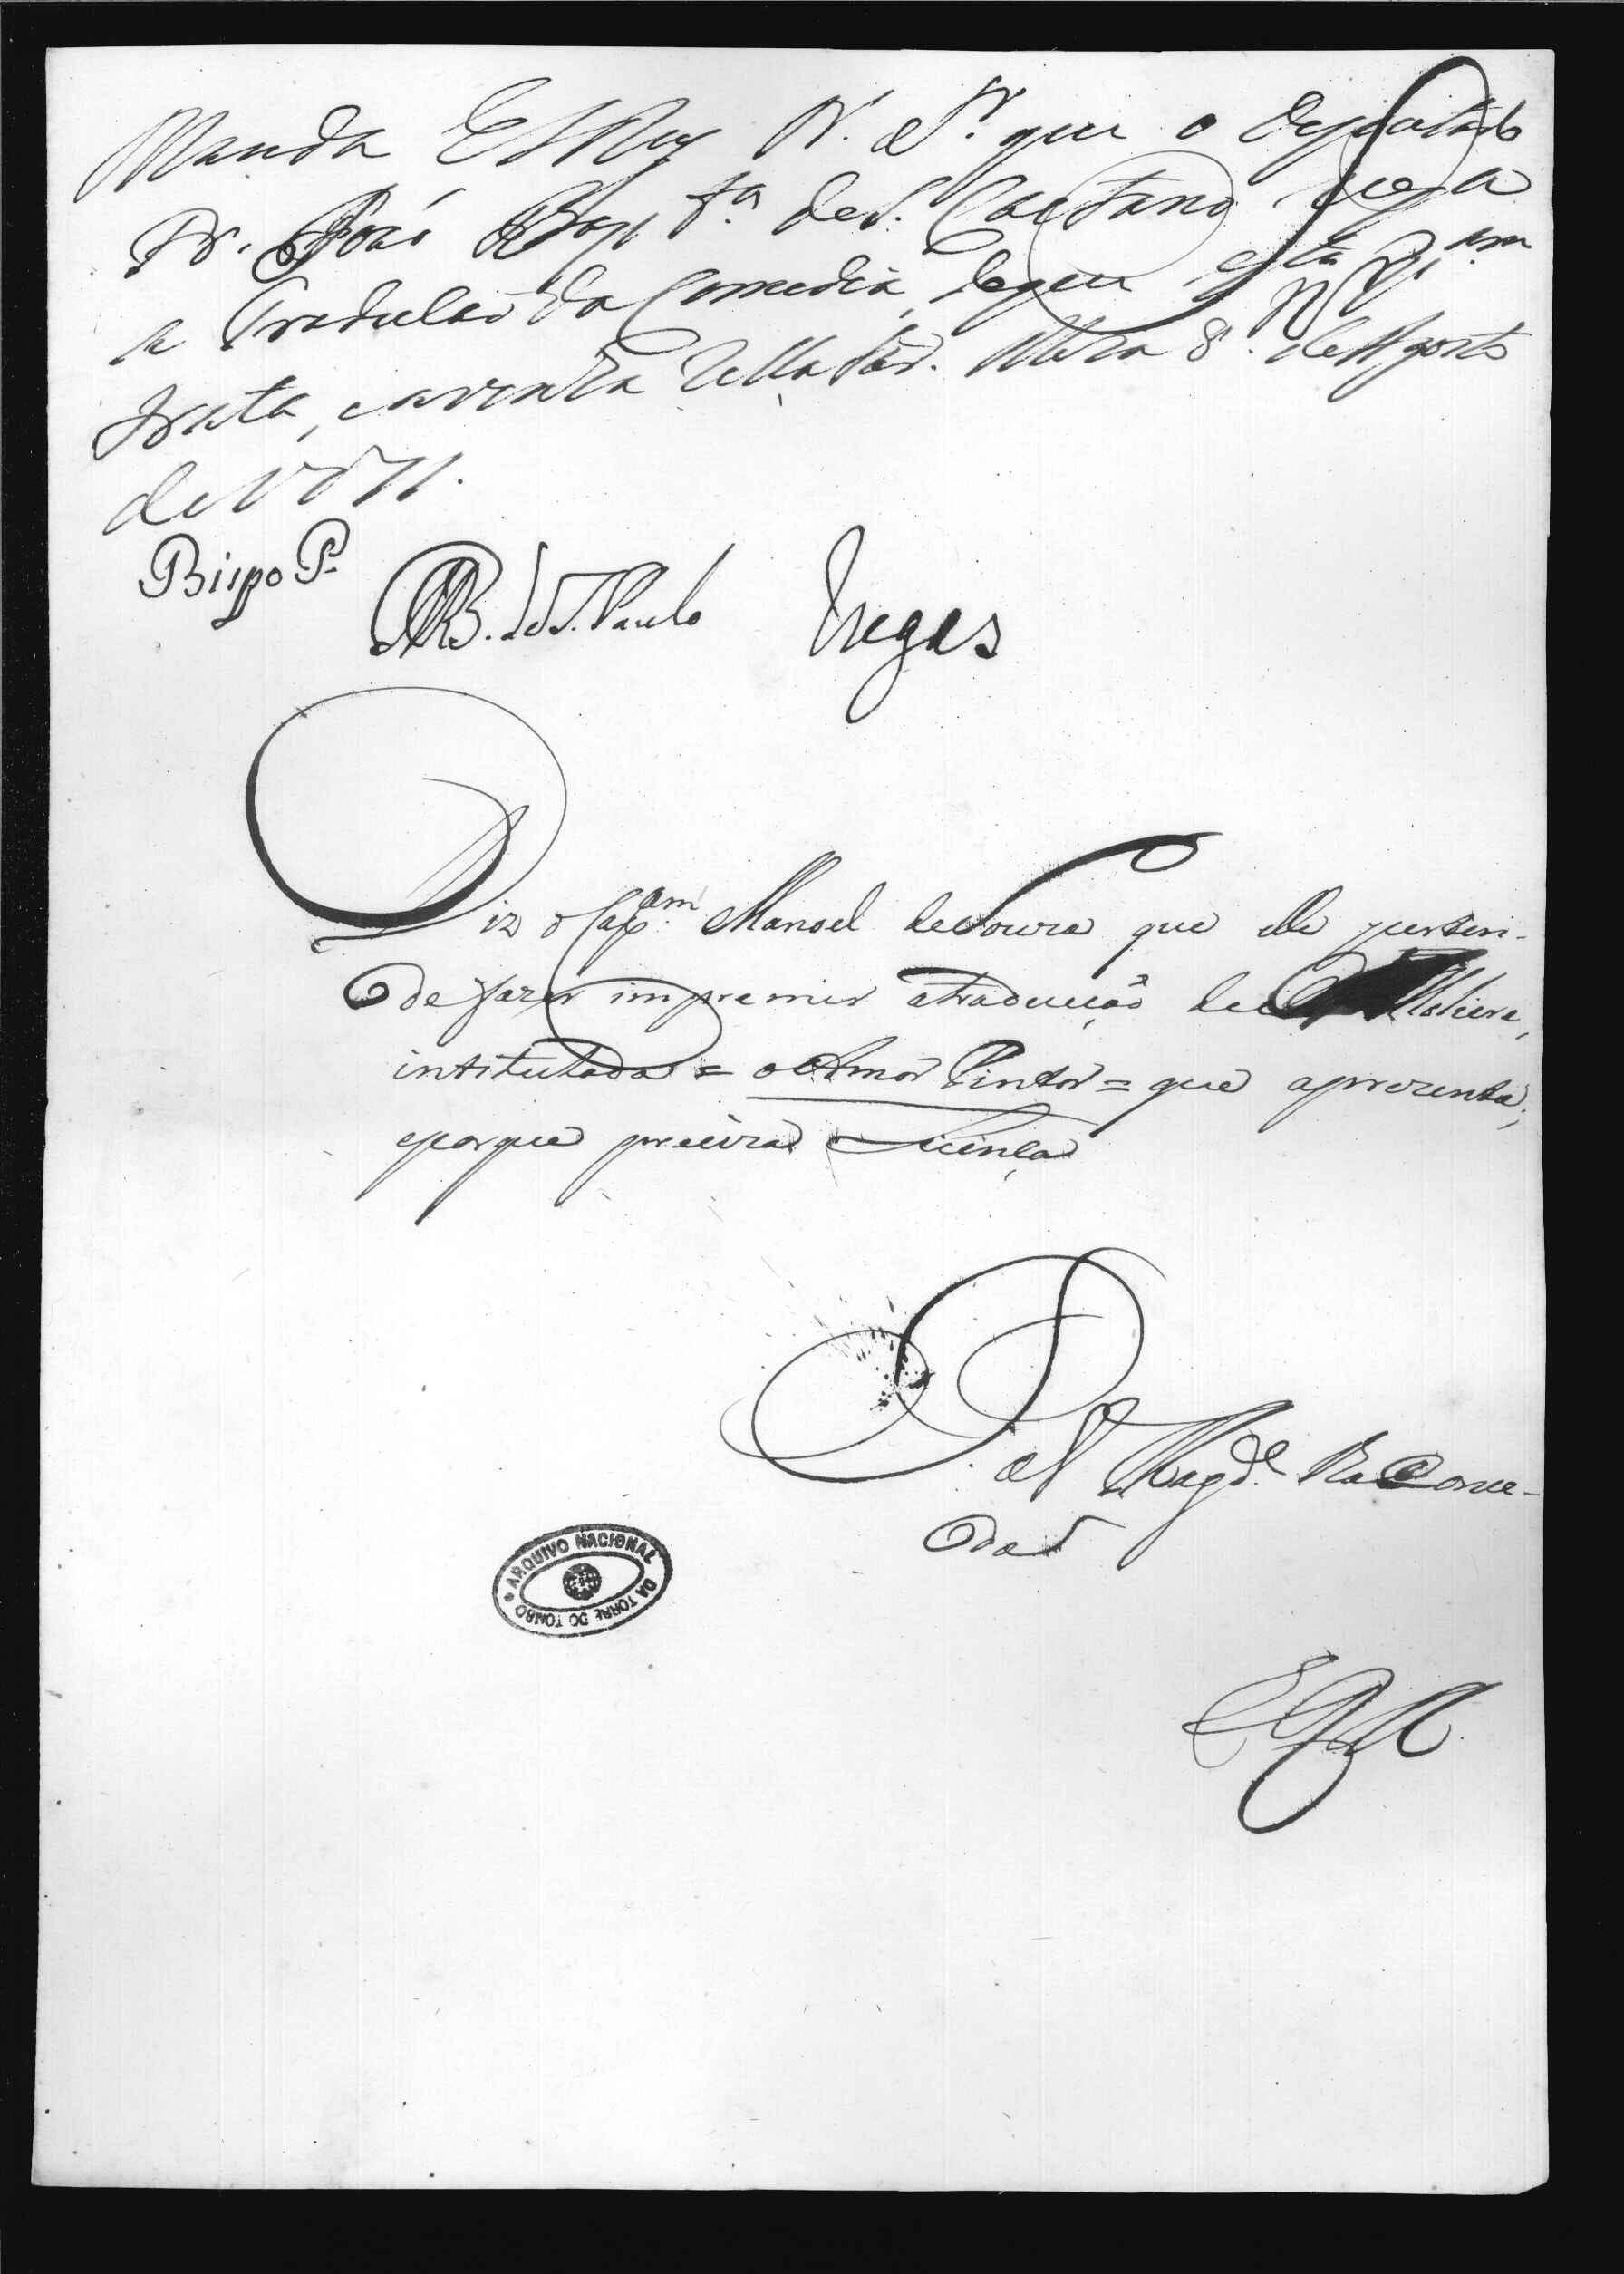 Manda ElRey N. S.r que o Deputado
Fr. João Bap.ta de S. Caetano veja
a Traducão da Comedia, de que esta
trata, e a remeta Meza 8. de Agosto
de 1771.
Bispo P.
B. de S. Paulo Viegas
Diz o Cap.am Manoel de Souza que elle perten-
de fazer impremir a traducçaõ de Moliere,
intitulada = o Amor Pintor = que aprezenta,
e porque preciza Licença
P. a V. Mag.de lha conce-
da
E R M.
ARQUIVO NACIONAL DA TORRE DO TOMBO